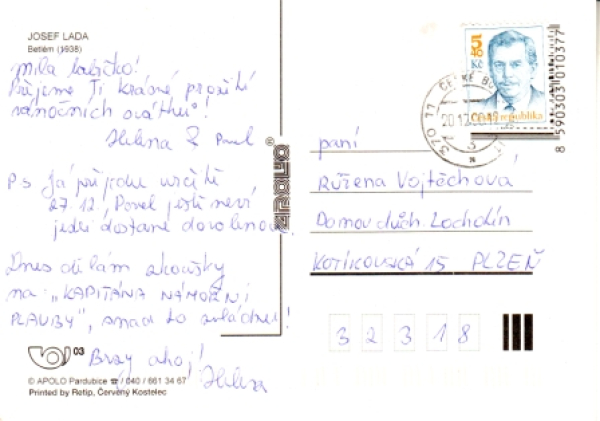 JOSEF LADA
Betlém (1938)
Milá babičko!
Přejeme Ti krásné prožití
vánočních svátků!
Helena & Pavel
PS Já přijedu určitě
27.12, Pavel ještě neví
jestli dostane dovolenou.
Dnes dělám zkoušky
na "KAPITÁNA NÁMOŘNÍ
PLAVBY", snad to zvládnu!
Brzy ahoj!
Helena
03
© APOLO Pardubice ☎ / 040 / 661 34 67
Printed by Retip, Červený Kostelec
APOLO®
540 Kč
Česká republika
370 77
3
8 590303 010377
paní
Růžena Vojtěchová
Domov důch. Lochotín
KOTÍKOVSKÁ 15 PLZEŇ
3 2 3 1 8